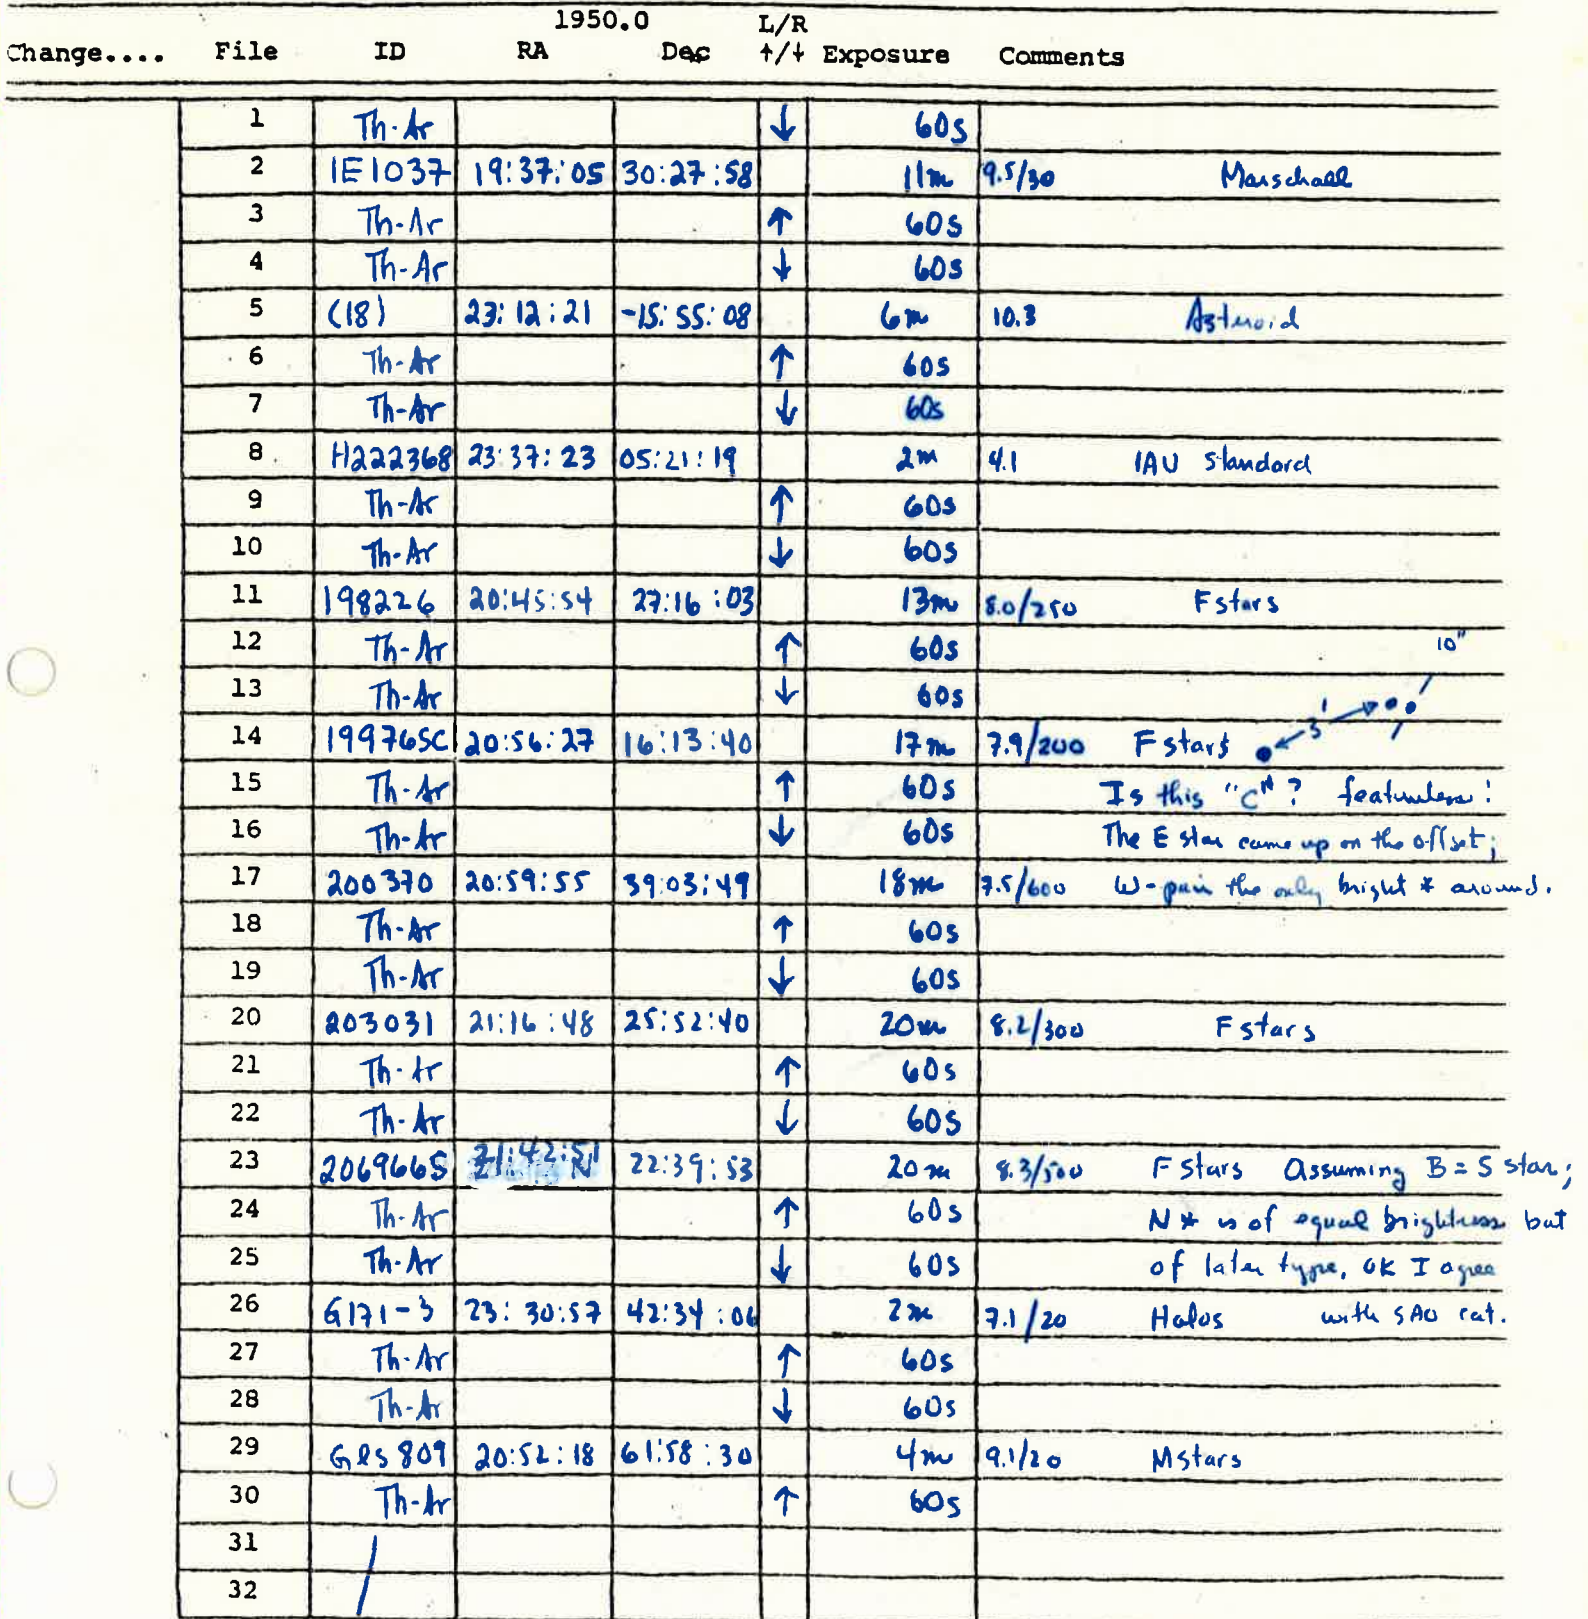 1950.0 L/R
Change.... File ID RA Dec ↑/↓ Exposure Comments
1 Th-Ar ↓ 60s
2 1E1037 19:37:05 30:27:58 11m 9.5/30 Marschall
3 Th-Ar ↑ 60s
4 Th-Ar ↓ 60s
5 (18) 23:12:21 -15:55:08 6m 10.3 Asteroid
6 Th-Ar ↑ 60s
7 Th-Ar ↓ 60s
8 H222368 23:37:23 05:21:19 2m 4.1 IAU Standard
9 Th-Ar ↑ 60s
10 Th-Ar ↓ 60s
11 198226 20:45:54 27:16:03 13m 8.0/250 F stars
12 Th-Ar ↑ 60s 10"
13 Th-Ar ↓ 60s
14 199765C 20:56:27 16:13:40 17m 7.9/200 F stars 3'
15 Th-Ar ↑ 60s Is this "C"? featureless!
16 Th-Ar ↓ 60s The E star came up on the offset;
17 200370 20:59:55 39:03:49 18m 7.5/600 W-pair the only bright * around.
18 Th-Ar ↑ 60s
19 Th-Ar ↓ 60s
20 203031 21:16:48 25:52:40 20m 8.2/300 F stars
21 Th-Ar ↑ 60s
22 Th-Ar ↓ 60s
23 206966S 21:42:51 22:39:53 20m 8.3/500 F Stars Assuming B = S star;
24 Th-Ar ↑ 60s N * is of equal brightness but
25 Th-Ar ↓ 60s of later type, OK I agree
26 G171-3 23:30:57 42:34:06 2m 7.1/20 Halos with SAO cat.
27 Th-Ar ↑ 60s
28 Th-Ar ↓ 60s
29 Gls 809 20:52:18 61:58:30 4m 9.1/20 M stars
30 Th-Ar ↑ 60s
31
32